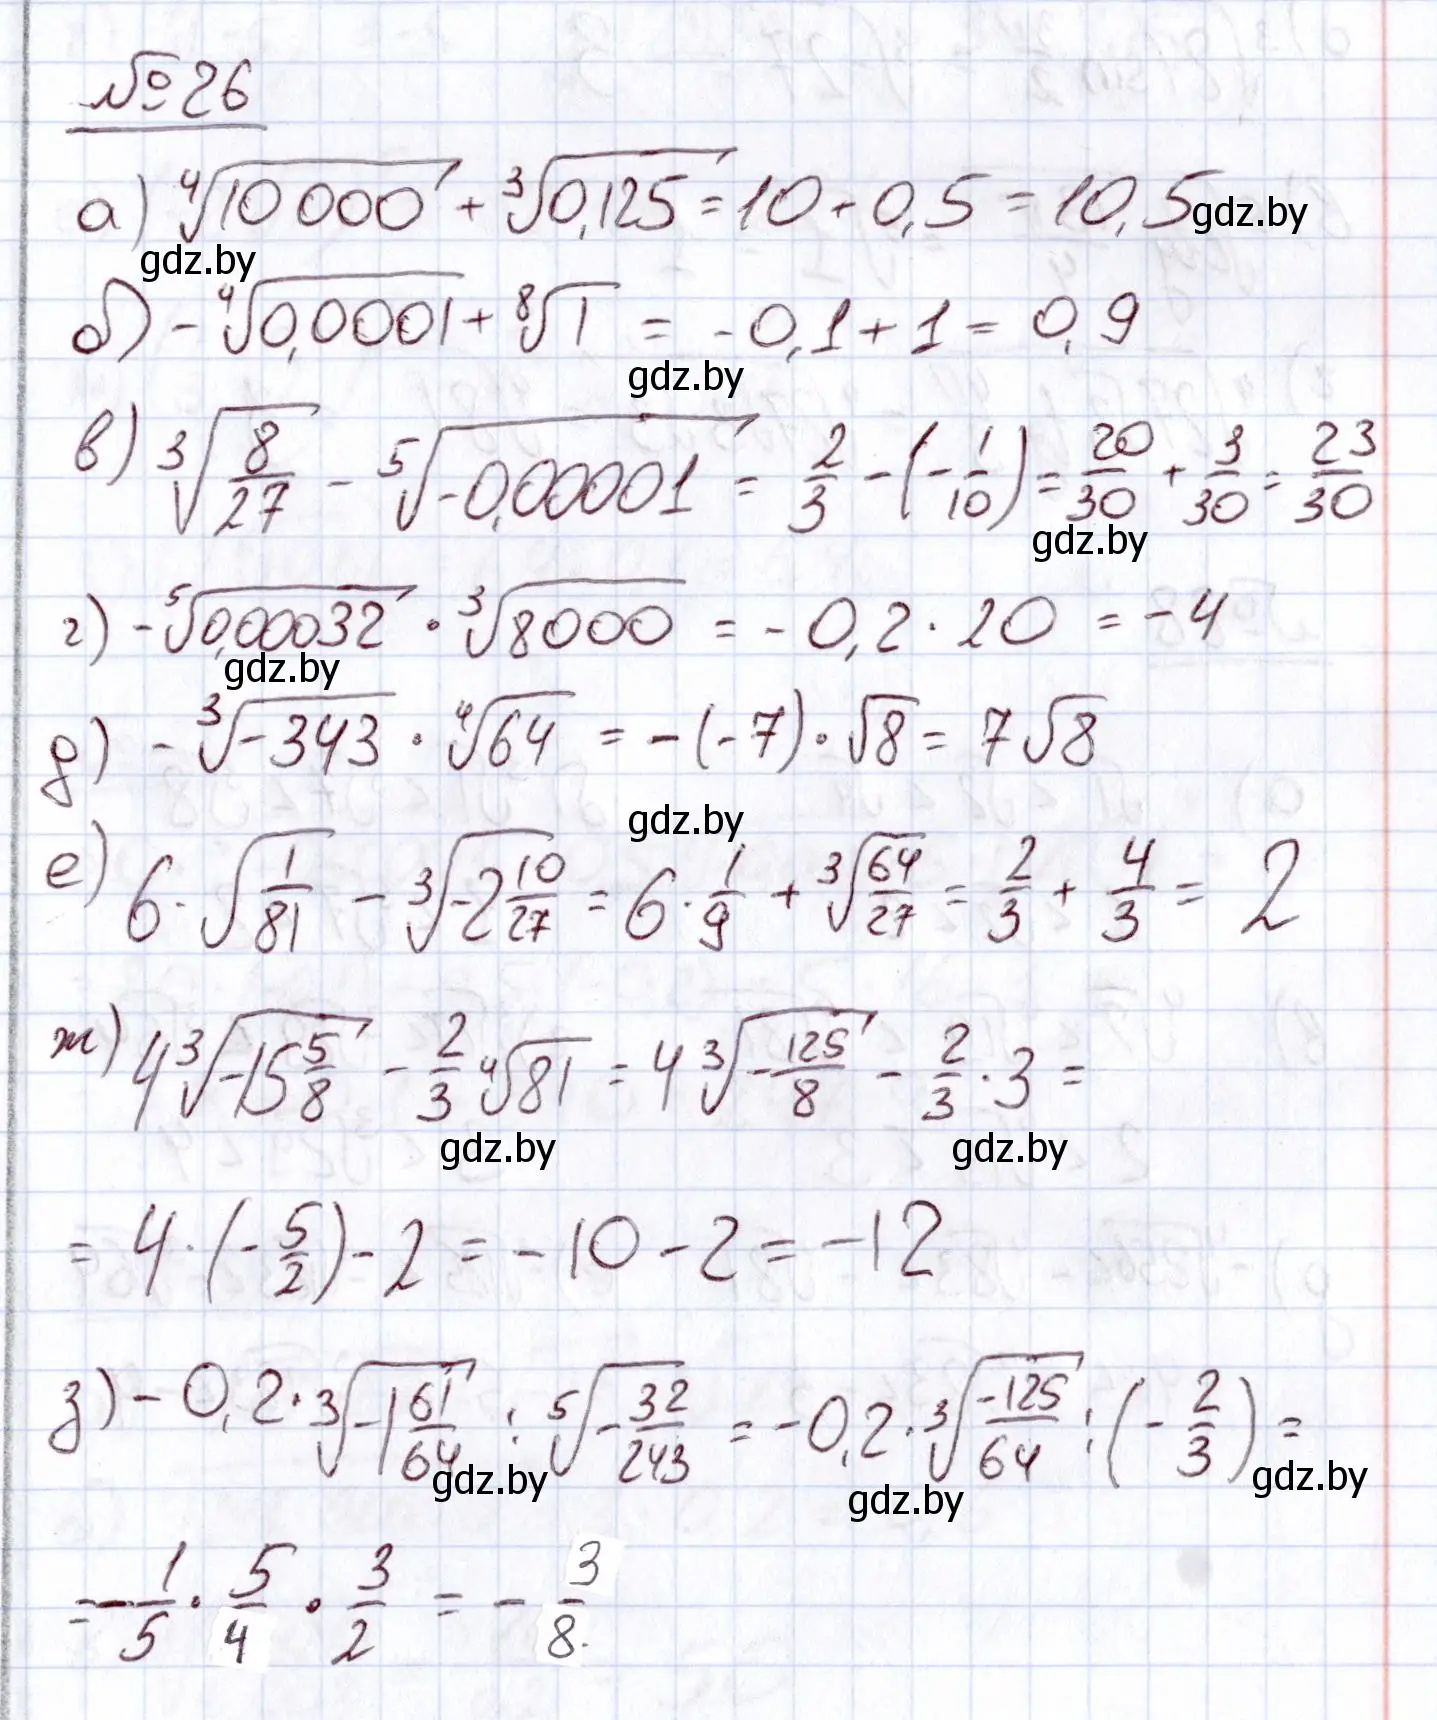 №26
а) ⁴√10 000 + ³√0,125 = 10 + 0,5 = 10,5 gdz.by
gdz.by
б) -⁴√0,0001 + ⁸√1 = -0,1 + 1 = 0,9
gdz.by
в) ³√(8/27) - ⁵√(-0,00001) = 2/3 - (-1/10) = 20/30 + 3/30 = 23/30
gdz.by
г) -⁵√0,00032 · ³√8000 = -0,2 · 20 = -4
gdz.by
д) -³√(-343) · ⁴√64 = -(-7) · √8 = 7√8
gdz.by
е) 6 · √(1/81) - ³√(-2 10/27) = 6 · 1/9 + ³√(64/27) = 2/3 + 4/3 = 2
ж) 4 ³√(-15 5/8) - 2/3 ⁴√81 = 4 ³√(-125/8) - 2/3 · 3 =
gdz.by gdz.by
= 4 · (-5/2) - 2 = -10 - 2 = -12
з) -0,2 · ³√(-1 61/64) : ⁵√(-32/243) = -0,2 · ³√(-125/64) : (-2/3) =
gdz.by gdz.by gdz.by
= -1/5 · 5/4 · 3/2 = -3/8.